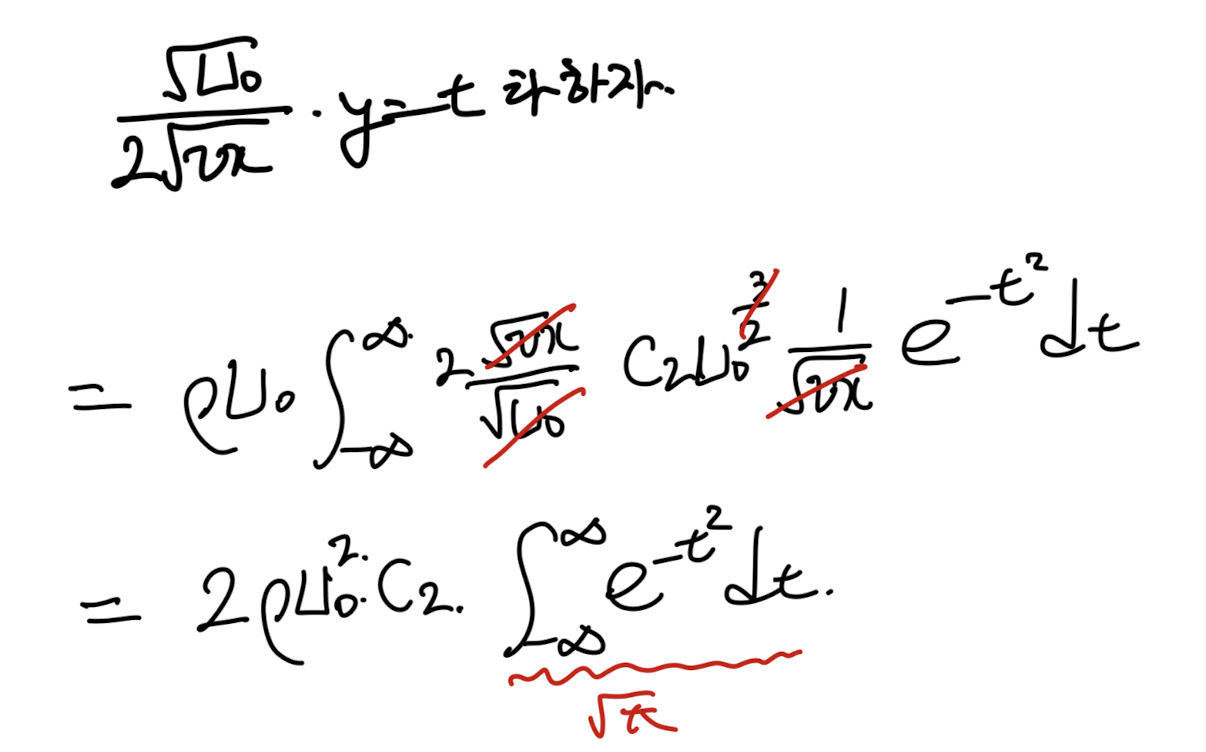 √U₀ / 2√νx · y = t 라 하자.
= ρU₀ ∫_{-∞}^{∞} 2 √νx / √U₀ C₂U₀^{3/2} 1/√νx e^{-t²} dt
= 2ρU₀²·C₂. ∫_{-∞}^{∞} e^{-t²} dt.
√π